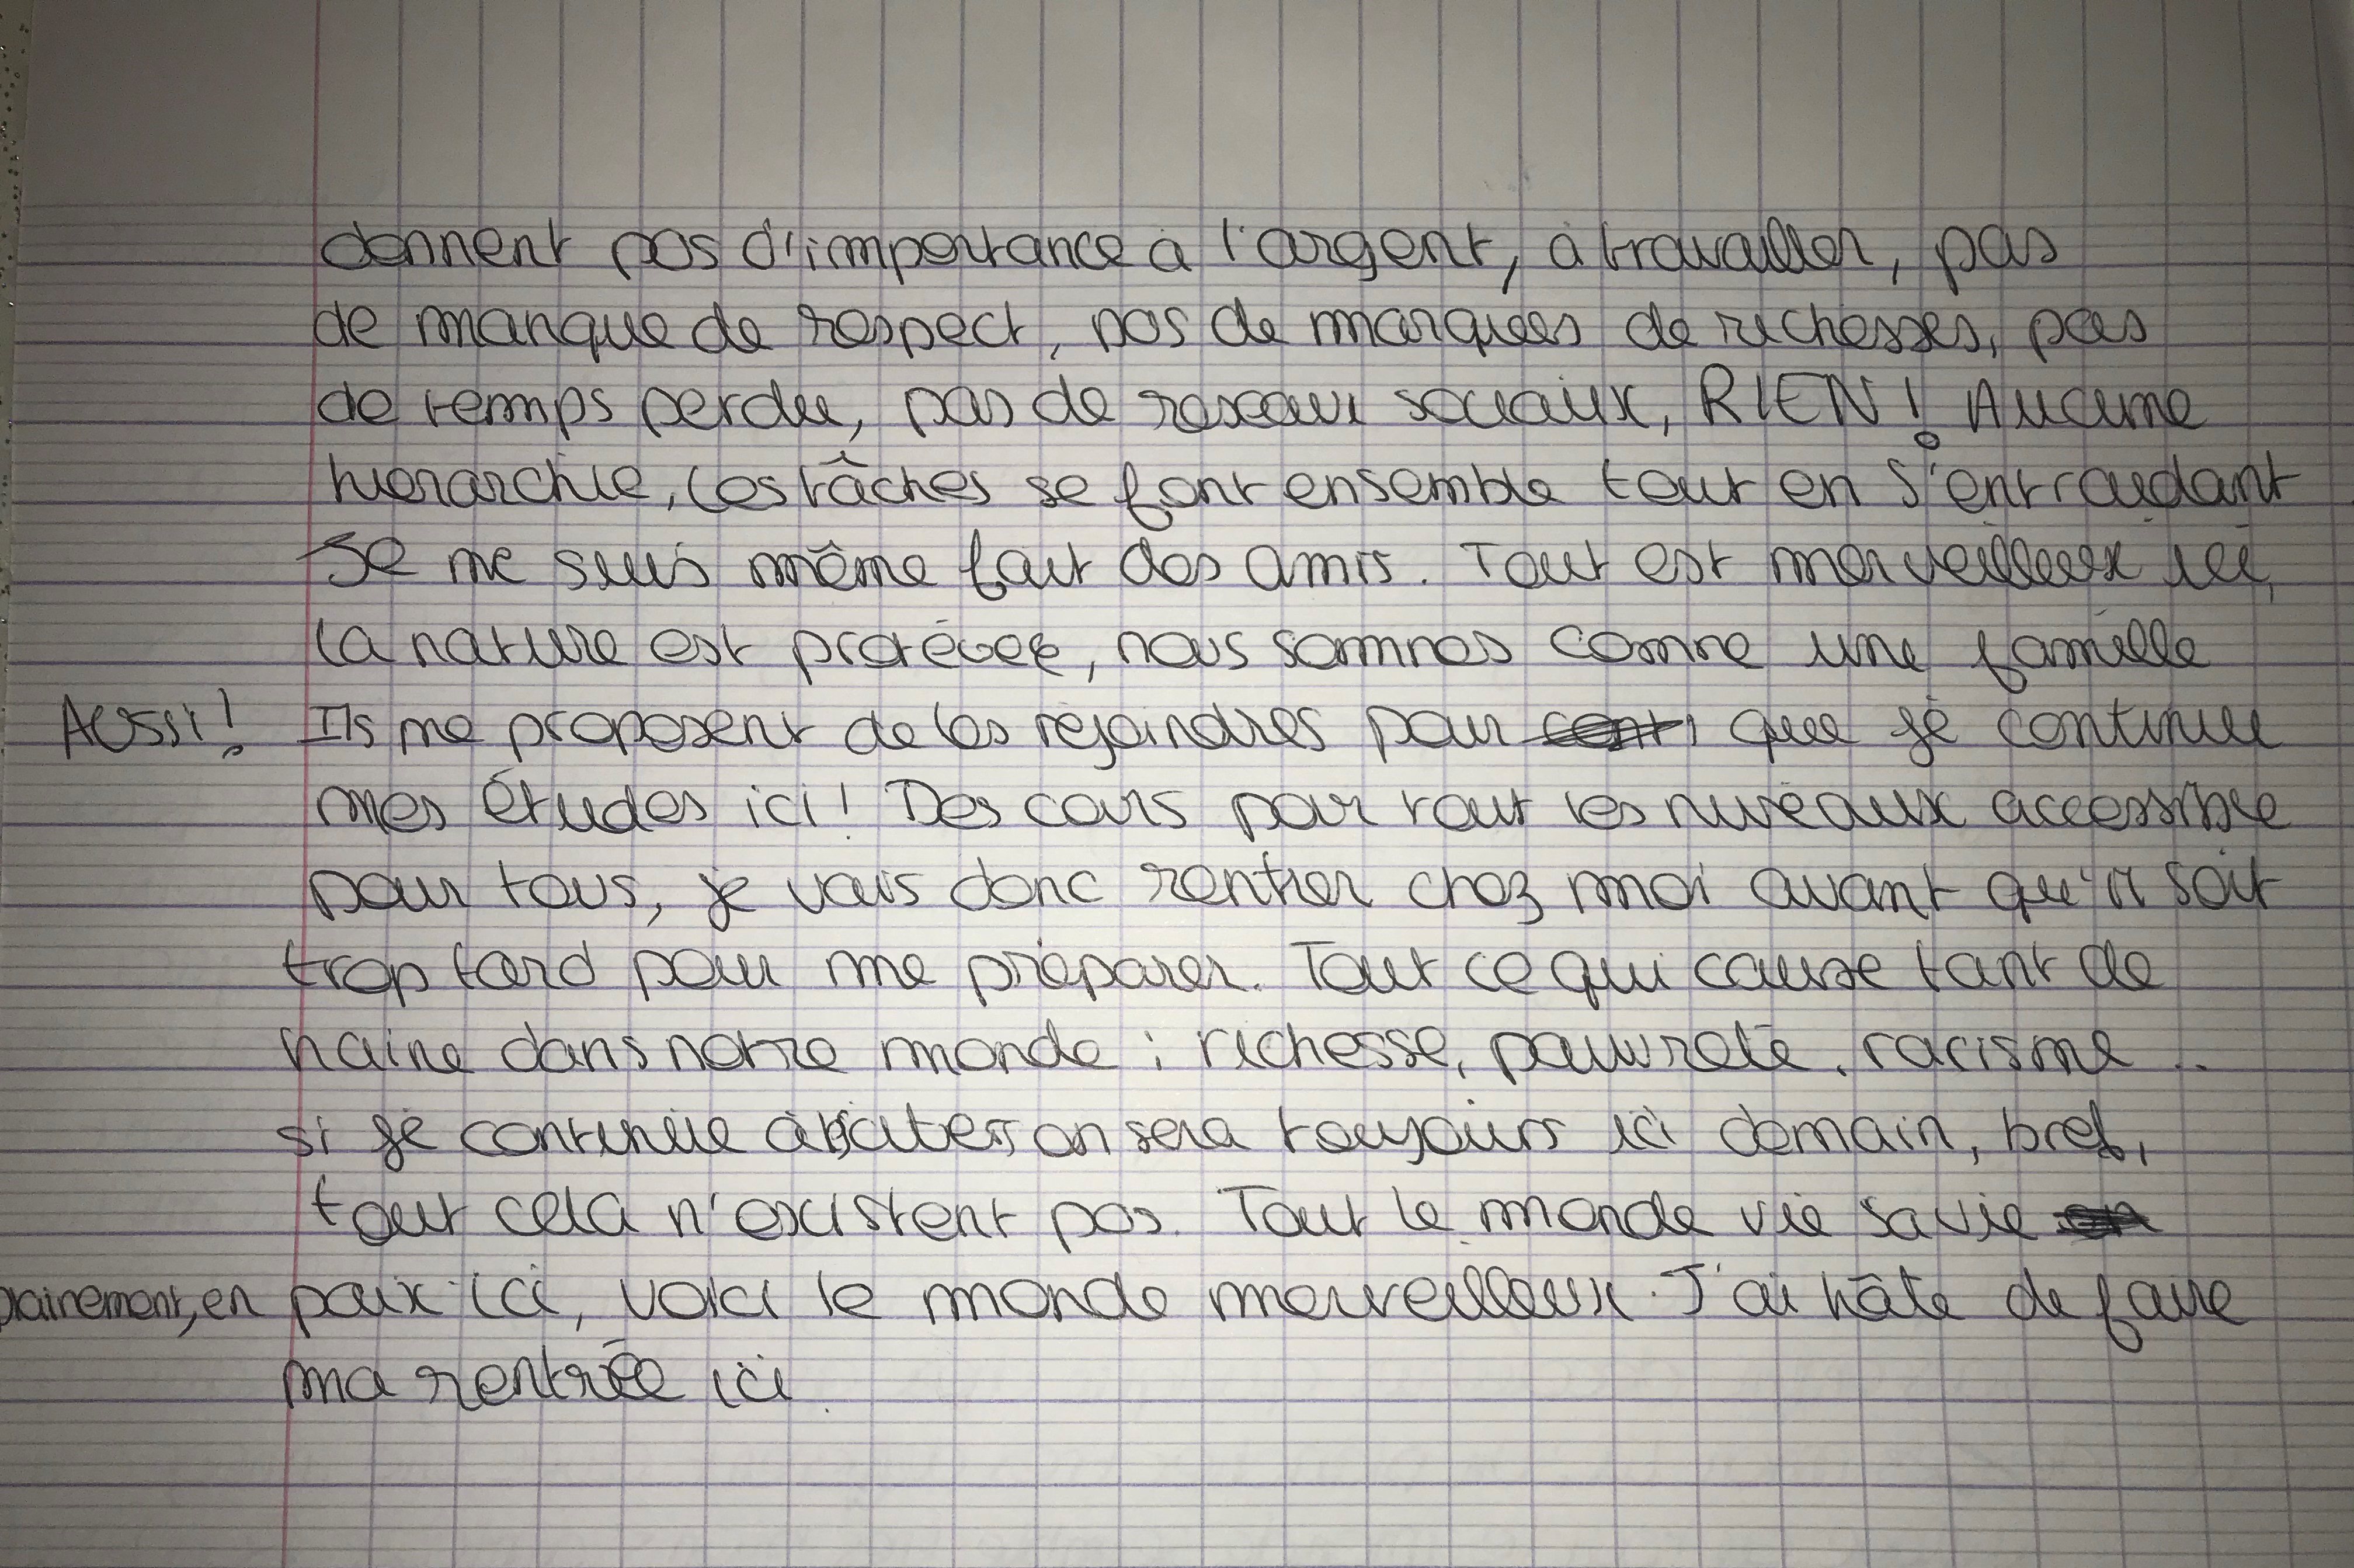 donnent pas d'importance à l'argent, à travailler, pas
de manque de respect, pas de marques de richesses, pas
de temps perdu, pas de reseaux sociaux, RIEN! Aucune
hierarchie, les tâches se font ensemble tout en s'entraidant
Je me suis même fait des amis. Tout est merveilleux ici,
la nature est protégée, nous sommes comme une famille
Aussi! Ils me proposent de les rejoindres pour que je continue
mes études ici! Des cours pour tout les niveaux accessible
pour tous, je vais donc rentrer chez moi avant qu'il soit
trop tard pour me préparer. Tout ce qui cause tant de
haine dans notre monde : richesse, pauvreté, racisme ..
si je continue à on sera toujours ici demain, bref,
tout cela n'existent pas. Tout le monde vie sa vie
en paix ici, voici le monde merveilleux. J'ai hâte de faire
ma rentrée ici.